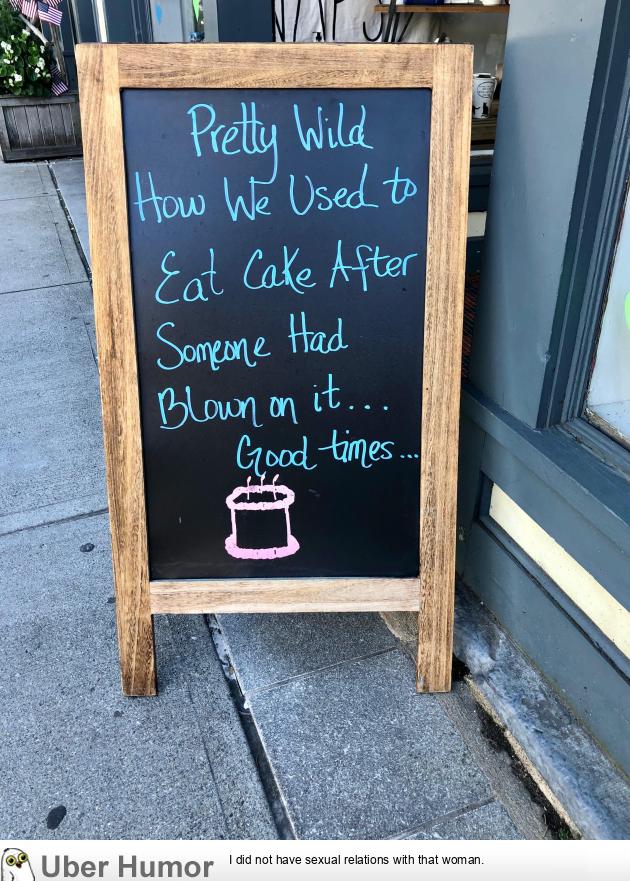 Pretty Wild
How We Used to
Eat Cake After
Someone Had
Blown on it...
Good times...
Uber Humor
I did not have sexual relations with that woman.